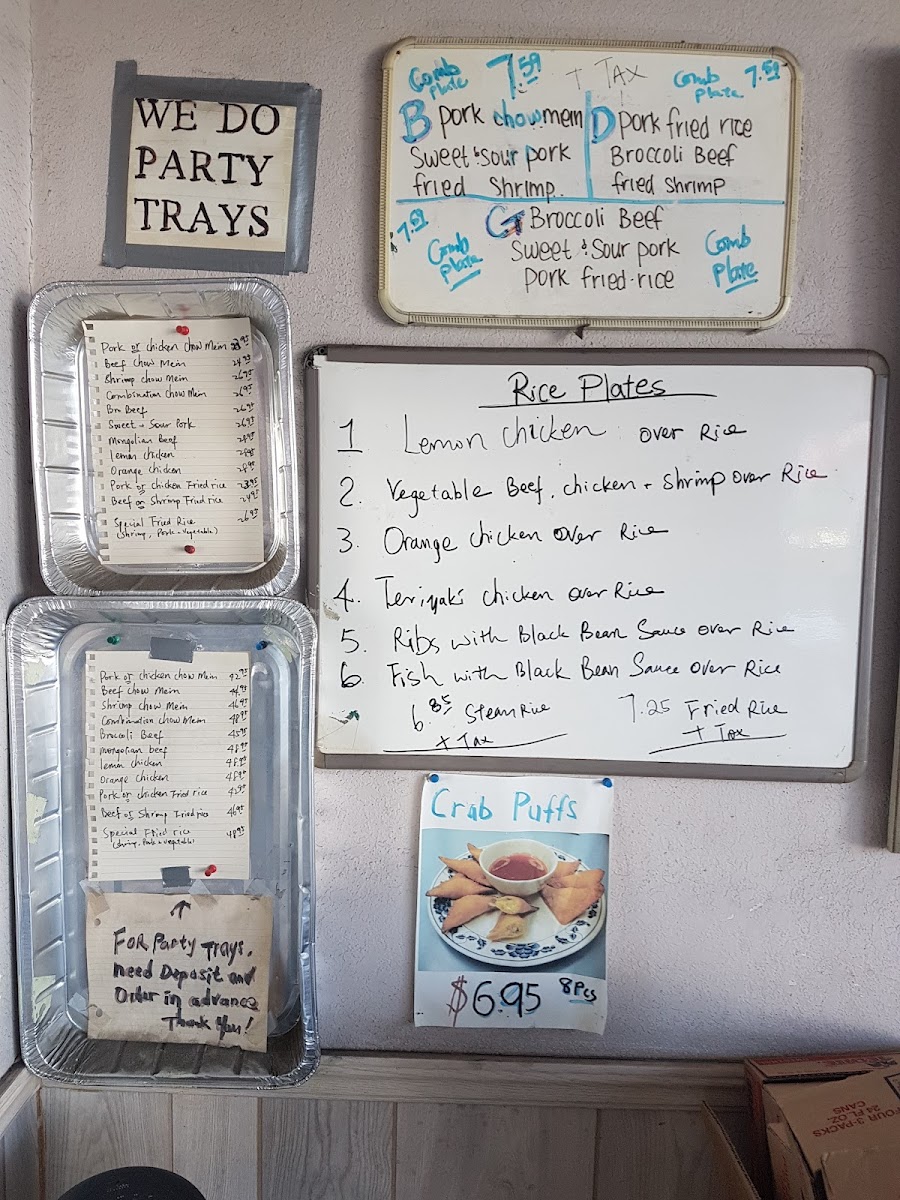 WE DO
PARTY
TRAYS
Comb plate 7.59 + TAX Comb plate 7.59
B pork chowmein
Sweet & sour pork
fried Shrimp..
D pork fried rice
Broccoli Beef
fried shrimp
7.59 Comb plate
G Broccoli Beef
Sweet & Sour pork
pork fried rice
Comb plate
Pork or chicken chow mein
Beef chow mein 24.95
Shrimp chow mein 26.95
Combination chow mein 26.95
Bro Beef 26.95
Sweet + Sour Pork 26.95
Mongolian Beef 28.95
lemon chicken 28.95
Orange chicken 28.95
Pork or chicken Fried rice 23.95
Beef or Shrimp Fried rice 24.95
Special Fried Rice 26.95
(Shrimp, Pork + Vegetable)
Rice Plates
1 Lemon chicken over Rice
2. Vegetable Beef, chicken + shrimp over Rice
3. Orange chicken over Rice
4. Teriyaki chicken over Rice
5. Ribs with Black Bean Sauce over Rice
6. Fish with Black Bean Sauce over Rice
6.85 Steam Rice
+ Tax
7.25 Fried Rice
+ Tax
Pork or chicken chow mein 42.95
Beef chow mein 44.95
Shrimp chow mein 46.95
Combination chow mein 48.95
Broccoli Beef 45.95
mongolian beef 48.95
lemon chicken 48.95
Orange chicken 48.95
Pork or chicken Fried rice 42.95
Beef or Shrimp Fried rice 46.95
Special Fried rice 48.95
(shrimp, Pork + vegetable)
FOR Party trays,
need Deposit and
Order in advance
Thank You!
Crab Puffs
$6.95 8 Pcs
FOUR 3-PACKS
24 FL OZ
CANS